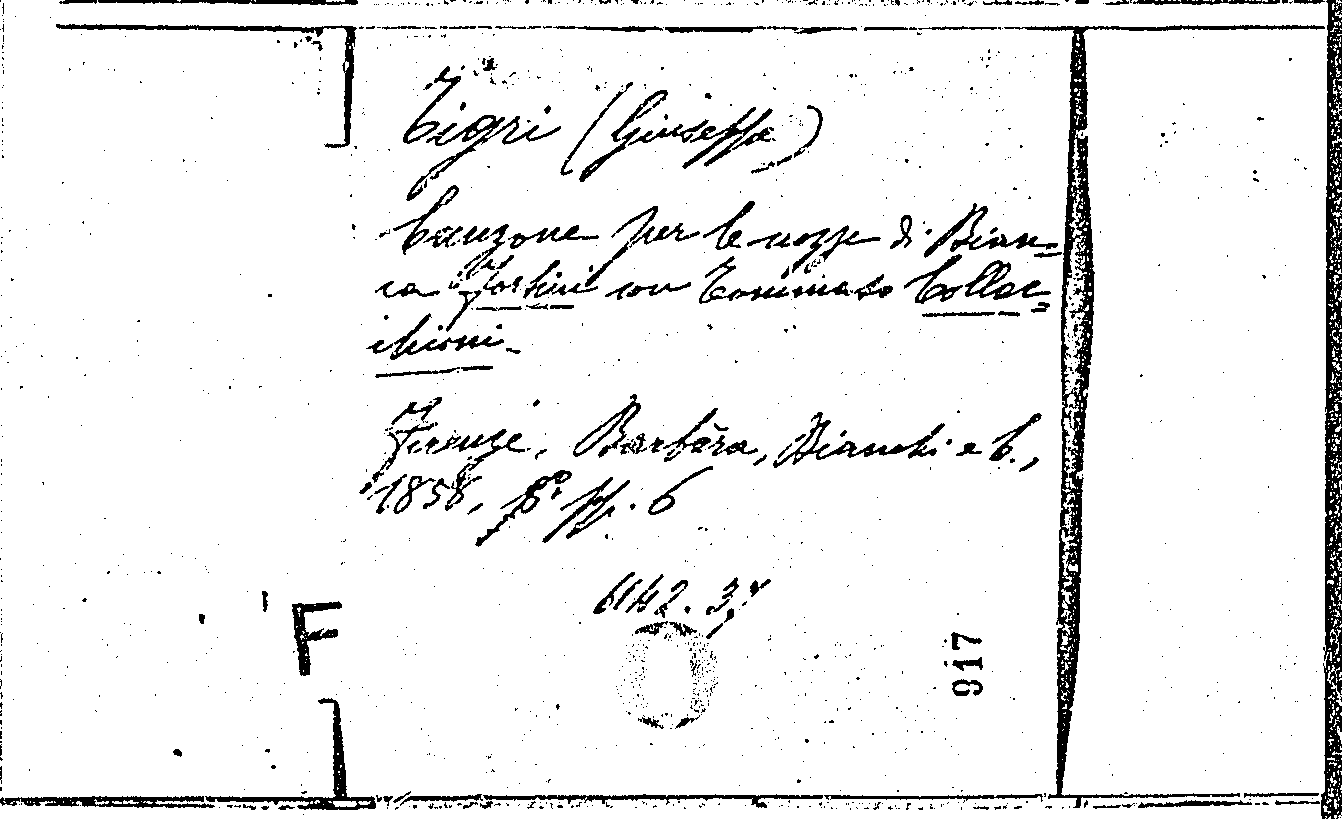 Tigri (Giuseppe)
Canzone per le nozze di Bian=
ca Fortini con Tommaso Collac=
chioni.
Firenze, Barbèra, Bianchi e C.,
1858, 8° pp. 6
6142. 37
F
917